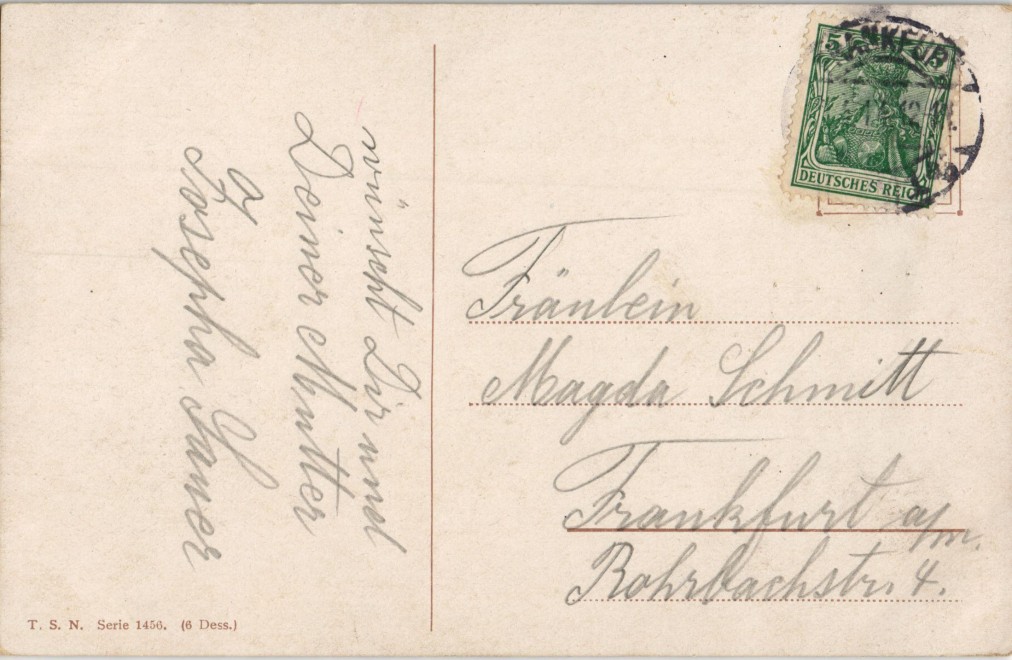 wünscht Dir und
Deiner Mutter
Josepha Sauer
5 5
DEUTSCHES REICH
Fräulein
Magda Schmitt
Frankfurt a/m.
Rohrbachstr. 4.
T. S. N. Serie 1456. (6 Dess.)